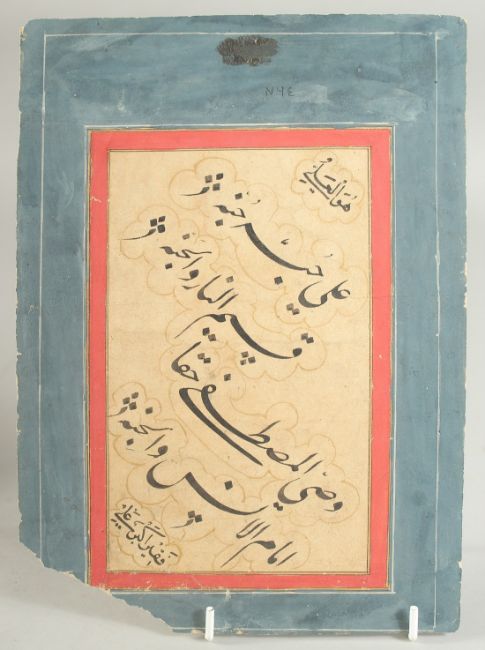 هو العلي
علي حبه جنه
قسيم النار والجنه
وصي المصطفى حقا
امام الانس والجنه